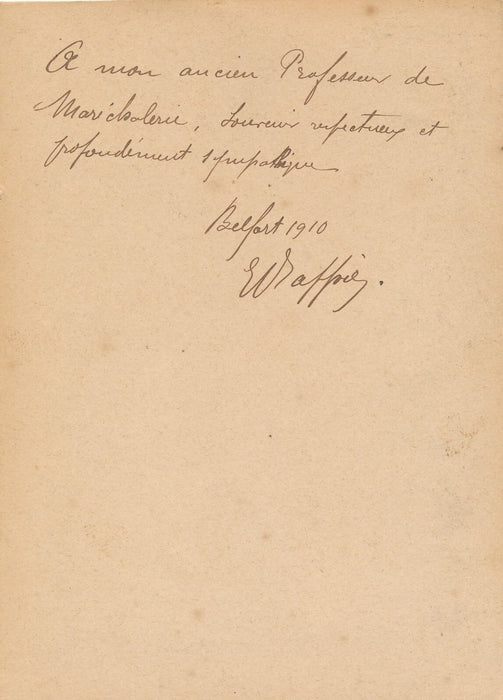 A mon ancien Professeur de
Maréchalerie, souvenir respectueux et
profondément sympathique
Belfort 1910